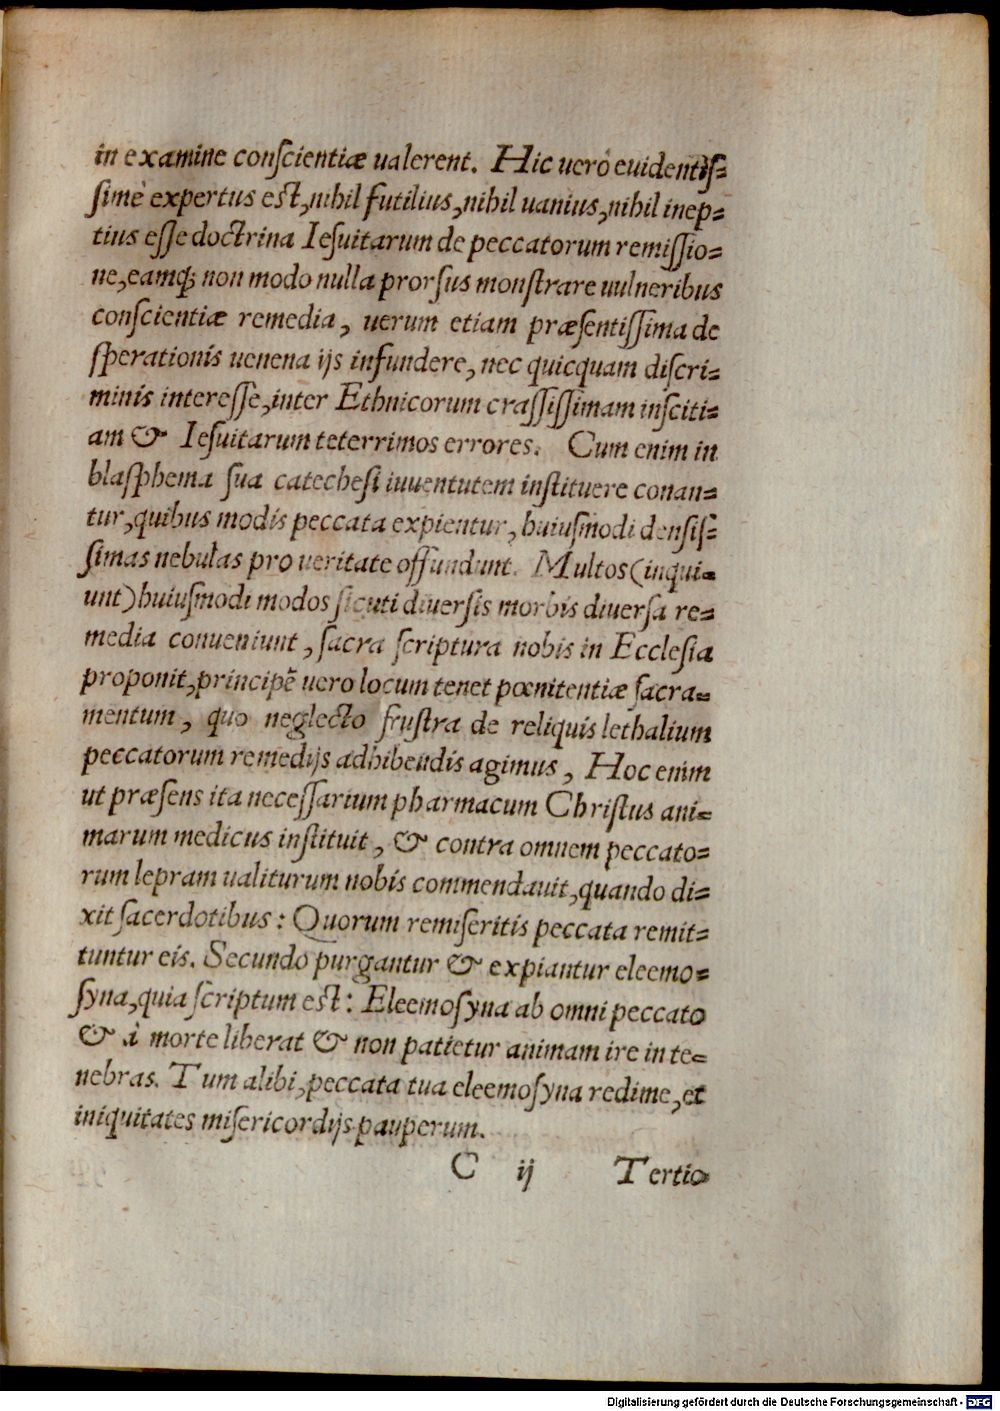 in examine conſcientiæ ualerent. Hic uerò euidentiſ-
ſimè expertus eſt, nihil futilius, nihil uanius, nihil inep-
tius eſſe doctrina Ieſuitarum de peccatorum remiſſio-
ne, eamq; non modo nulla prorſus monſtrare uulneribus
conſcientiæ remedia, uerum etiam præſentiſſima de
ſperationis uenena ijs infundere, nec quicquam diſcri-
minis intereſſe, inter Ethnicorum craſſiſſimam inſciti-
am & Ieſuitarum teterrimos errores. Cum enim in
blaſphema ſua catecheſi iuuentutem inſtituere conan-
tur, quibus modis peccata expientur, huiuſmodi denſiſ-
ſimas nebulas pro ueritate offundunt. Multos (inqui-
unt) huiuſmodi modos ſicuti diuerſis morbis diuerſa re-
media conueniunt, ſacra ſcriptura nobis in Eccleſia
proponit, principẽ uero locum tenet pœnitentiæ ſacra-
mentum, quo neglecto fruſtra de reliquis lethalium
peccatorum remedijs adhibendis agimus, Hoc enim
ut præſens ita neceſſarium pharmacum Chriſtus ani-
marum medicus inſtituit, & contra omnem peccato-
rum lepram ualiturum nobis commendauit, quando di-
xit ſacerdotibus: Quorum remiſeritis peccata remit-
tuntur eis. Secundo purgantur & expiantur eleemo-
ſyna, quia ſcriptum eſt: Eleemoſyna ab omni peccato
& à morte liberat & non patietur animam ire in te-
nebras. Tum alibi, peccata tua eleemoſyna redime, et
iniquitates miſericordijs pauperum.
C ij Tertio
Digitalisierung gefördert durch die Deutsche Forschungsgemeinschaft - DFG